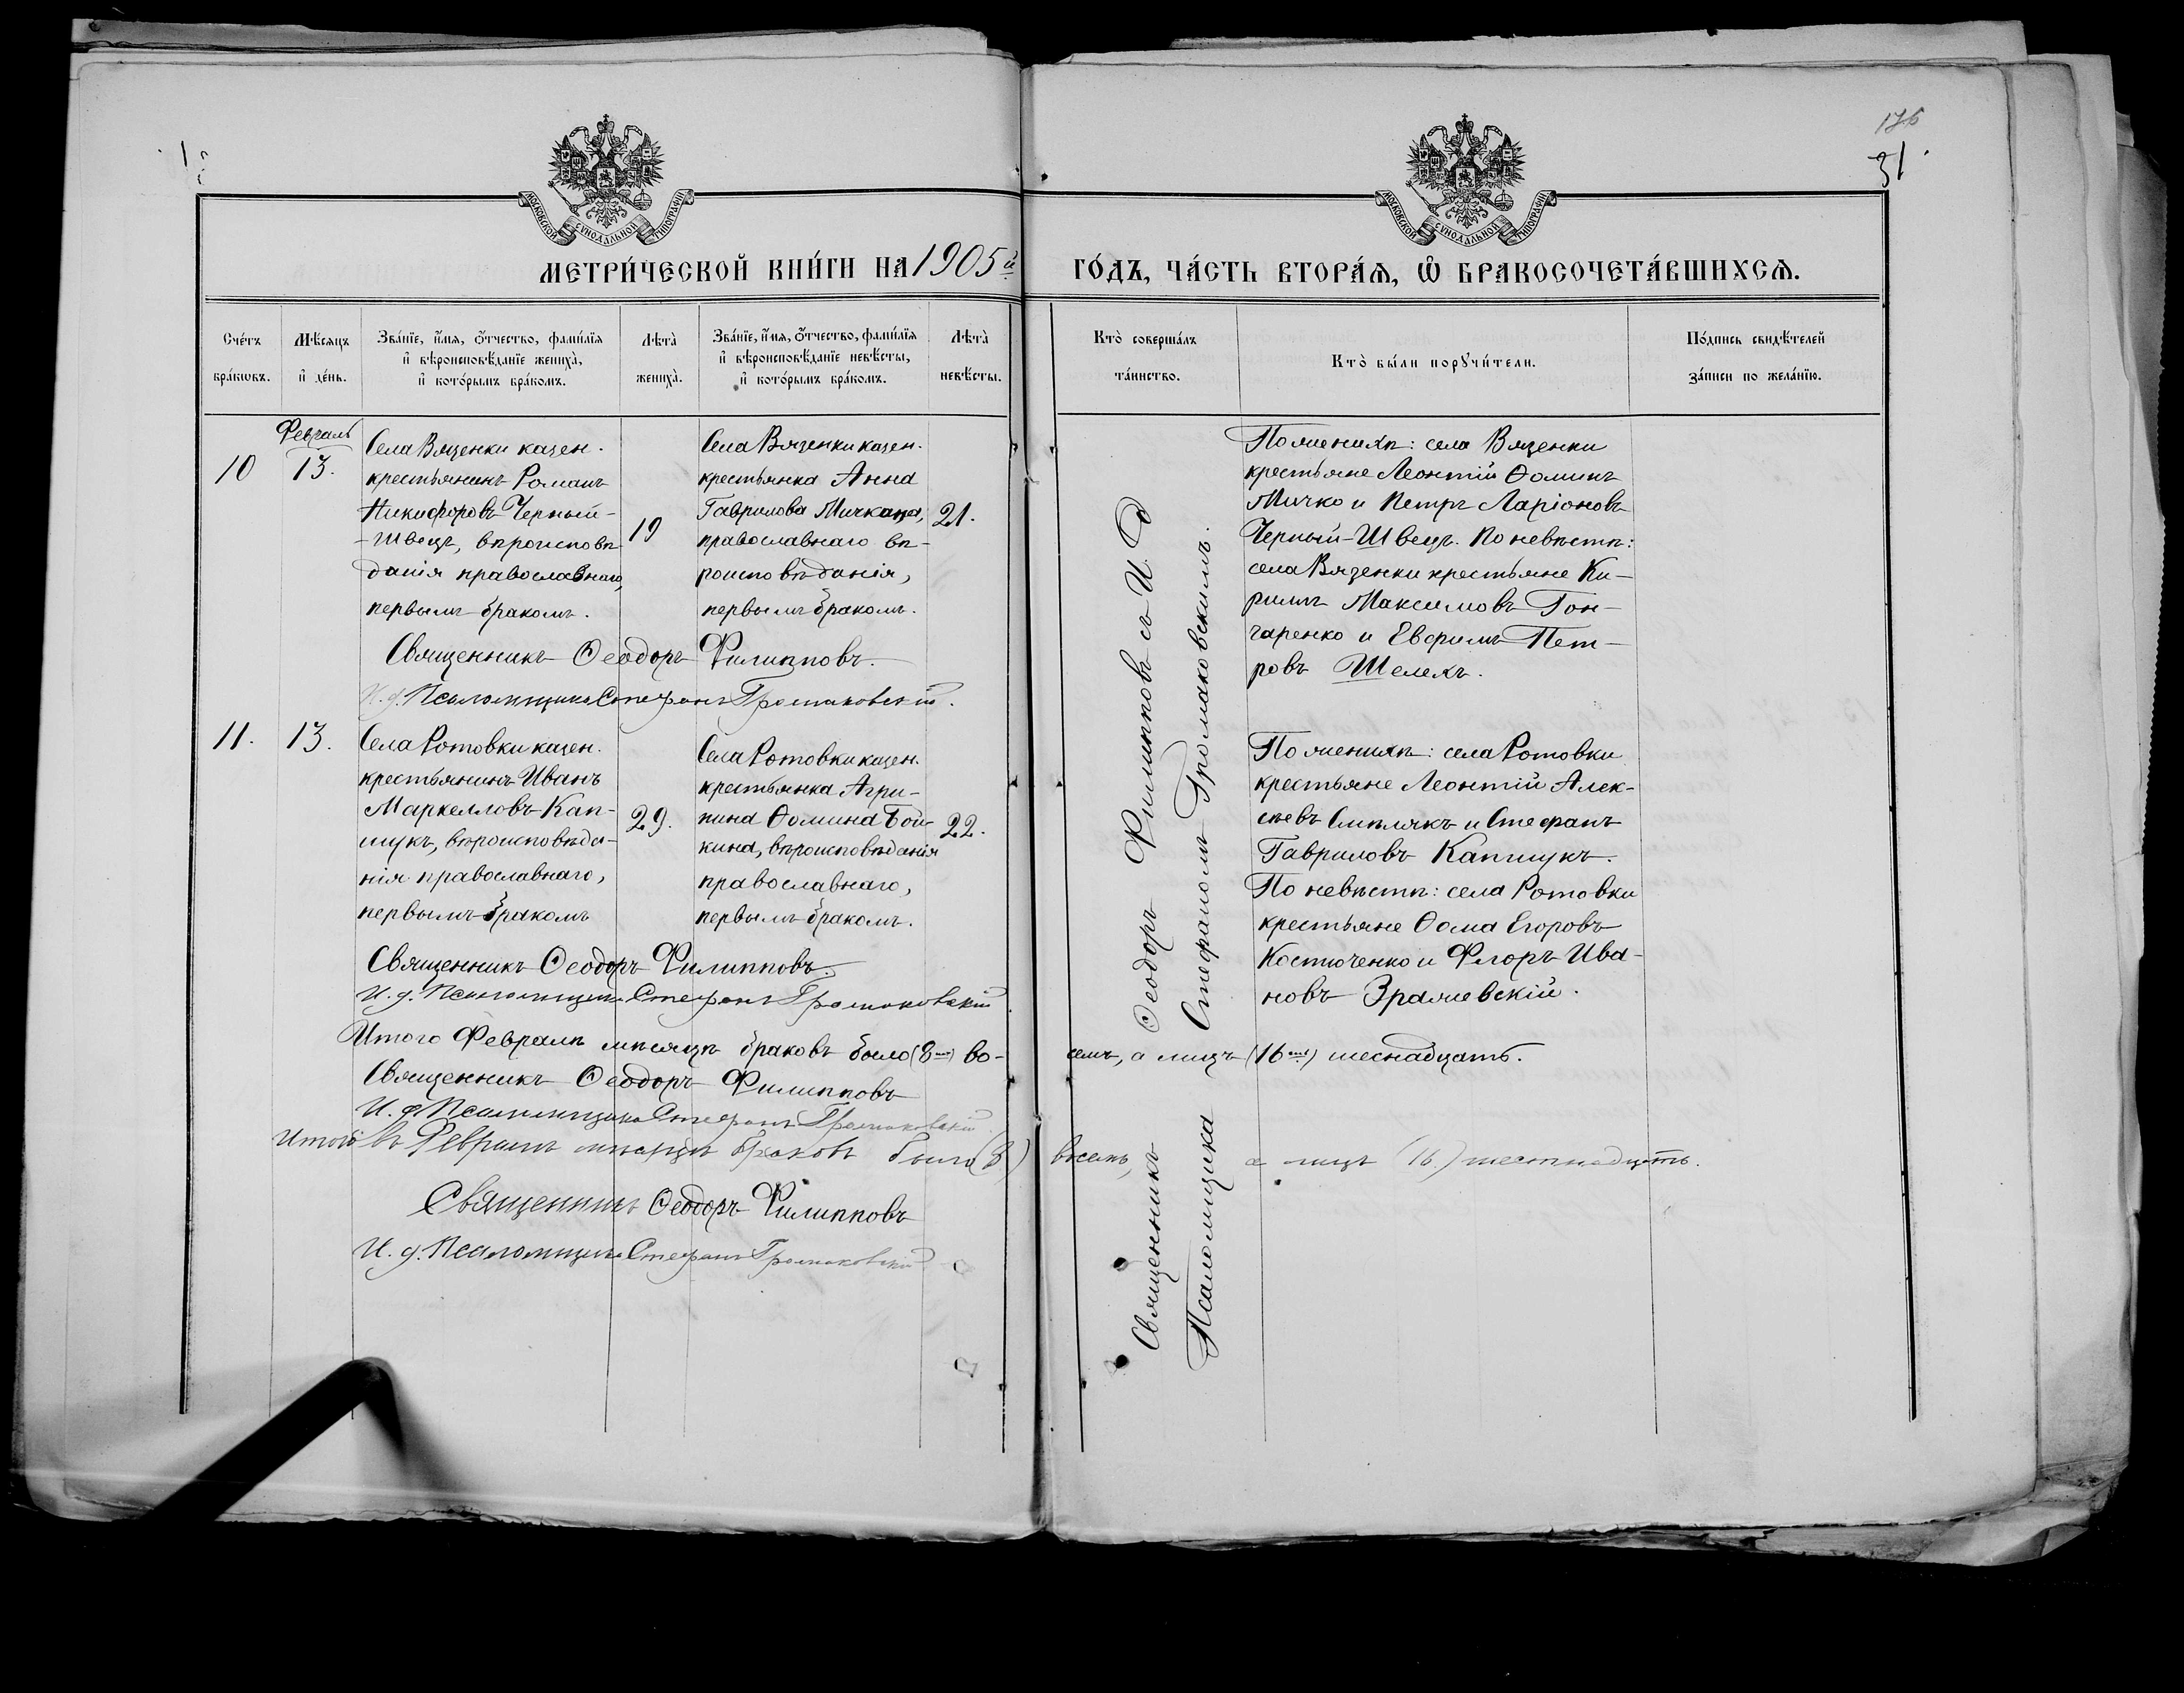 176
31.
МОСКОВСКОЙ СѴНОДАЛЬНОЙ ТИПОГРАФІИ
МОСКОВСКОЙ СѴНОДАЛЬНОЙ ТИПОГРАФІИ
МЕТРИ́ЧЕСКОЙ КНИ́ГИ НА 1905й
ГО́ДЪ, ЧА́СТЬ ВТОРА́Ѧ, Ѽ БРАКОСОЧЕТА́ВШИХСѦ.
Сче́тъ
бра́кѡвъ.
Мѣ́сяцъ
и҆ де́нь.
Зва́нїе, и҆́мя, ѻ҆́тчество, фами́лїя
и҆ вѣроисповѣ́данїе жениха̀,
и҆ кото́рымъ бра́комъ.
Лѣта̀
жениха̀.
Зва́нїе, и҆́мя, ѻ҆́тчество, фами́лїя
и҆ вѣроисповѣ́данїе невѣ́сты,
и҆ кото́рымъ бра́комъ.
Лѣта̀
невѣ́сты.
Кто̀ соверша́лъ
та́инство.
Кто̀ бы́ли порꙋчи́тели.
По́дпись свидѣ́телей
за́писи по жела́нїю.
10
Февраль
13.
Села Вязенки казен.
крестьянинъ Романъ
Никифоровъ Черный-
-Швецъ, вѣроисповѣ-
данія православнаго,
первымъ бракомъ.
19
Села Вязенки казен.
крестьянка Анна
Гаврилова Мичкина,
православнаго вѣ-
роисповѣданія,
первымъ бракомъ.
21.
По женихѣ: села Вязенки
крестьяне Леонтій Ѳоминъ
Мичко и Петръ Ларіоновъ
Черный-Швецъ. По невѣстѣ:
села Вязенки крестьяне Ки-
риллъ Максимовъ Гон-
чаренко и Евфимъ Пет-
ровъ Шелехъ.
Священникъ Ѳеодоръ Филипповъ.
И. д. Псаломщика Стефанъ Громаковскій.
11.
13.
Села Ротовки казен.
крестьянинъ Иванъ
Маркелловъ Кап-
шукъ, вѣроисповѣда-
нія православнаго,
первымъ бракомъ
29.
Села Ротовки казен.
крестьянка Агри-
пина Ѳомина Бой-
кина, вѣроисповѣданія
православнаго,
первымъ бракомъ.
22.
По женихѣ: села Ротовки
крестьяне Леонтій Алек-
сѣевъ и Стефанъ
Гавриловъ Капшукъ.
По невѣстѣ: села Ротовки
крестьяне Ѳома Егоровъ
Костюченко и Флоръ Ива-
новъ Зражевскій.
Священникъ Ѳеодоръ Филипповъ.
И. д. Псаломщика Стефанъ Громаковскій
Итого Февралѣ мѣсяцѣ браковъ было (8) во-
семъ, а лицъ (16) шеснадцать.
Священникъ Ѳеодоръ Филипповъ
И. д. Псаломщика Стефанъ Громаковскій
Итого въ Февралѣ мѣсяцѣ браковъ было (8) восемь, а лицъ (16.) шестнадцать.
Священникъ Ѳеодоръ Филипповъ
И. д. Псаломщика Стефанъ Громаковскій
Священникъ Ѳеодоръ Филипповъ съ И. Д
Псаломщика Стефаномъ Громаковскимъ.